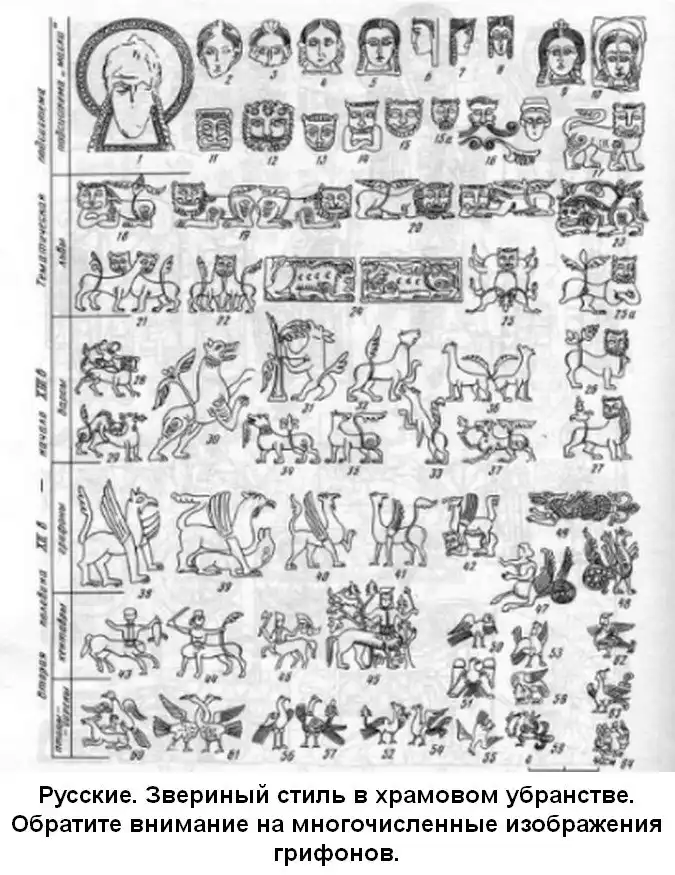 1 2 3 4 5 6 7 8 9 10
11 12 13 14 15 15а 16 17
18 19 20 23
21 22 24 25 25а
28 30 31 32 36 26
29 34 35 33 37 27
38 39 40 41 42 47 48
43 44 45 50 51
60 61 56 57 52 54 55 0
Вторая половина XII в — начало XIII в
Тематическая подсистема
подсистема „маска"
львы
барсы
грифоны
кентавры
Русские. Звериный стиль в храмовом убранстве.
Обратите внимание на многочисленные изображения
грифонов.